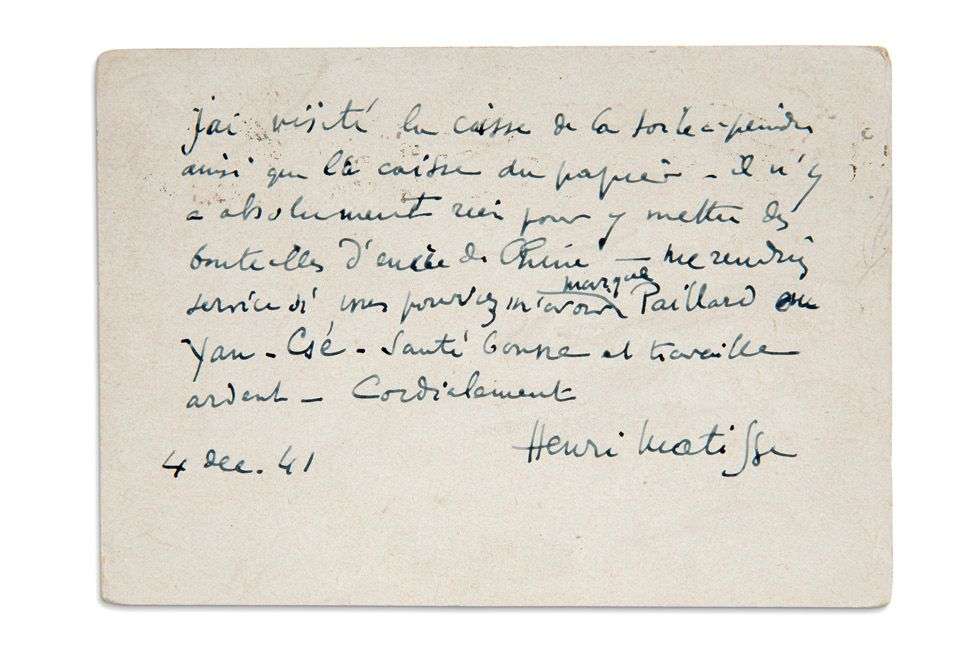 J'ai visité la caisse de la toile à peindre
ainsi que la caisse du papier - il n'y
a absolument rien pour y mettre des
bouteilles d'encre de Chine - me rendriez
service si vous pouviez m'avoir marque Paillard ou
Yan-Csé - Santé bonne et travaille
ardent - Cordialement
4 dec. 41 Henri Matisse